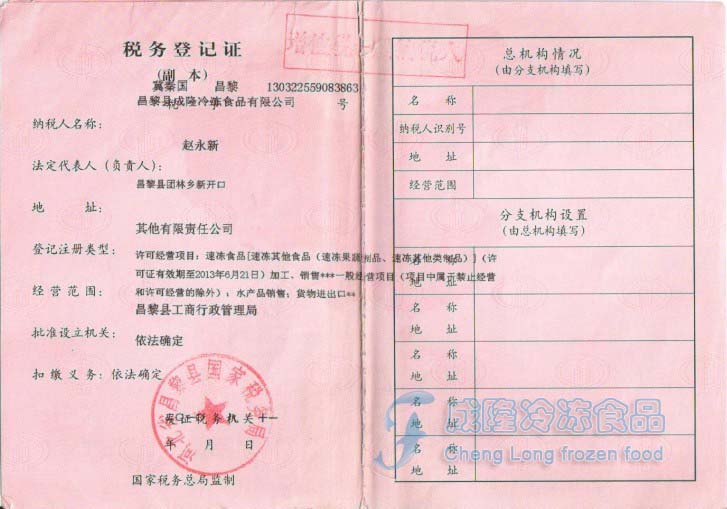 税务登记证
(副 本)
冀秦国 昌黎 130322559083863
昌黎县成隆冷冻食品有限公司 号
纳税人名称:
赵永新
法定代表人(负责人):
昌黎县团林乡新开口
地 址:
其他有限责任公司
登记注册类型:
许可经营项目:速冻食品[速冻其他食品(速冻果蔬制品、速冻其他类制品)](许
可证有效期至2013年6月21日)加工、销售***一般经营项目(项目中属于禁止经营
经营范围:
和许可经营的除外):水产品销售;货物进出口**
昌黎县工商行政管理局
批准设立机关:
依法确定
扣缴义务:依法确定
河北省昌黎县国家税务局
发证税务机关
年 月 日
国家税务总局监制
总机构情况
(由分支机构填写)
名 称
纳税人识别号
地 址
经营范围
分支机构设置
(由总机构填写)
名 称
地 址
名 称
地 址
名 称
地 址
名 称
地 址
名 称
地 址
成隆冷冻食品
Cheng Long frozen food